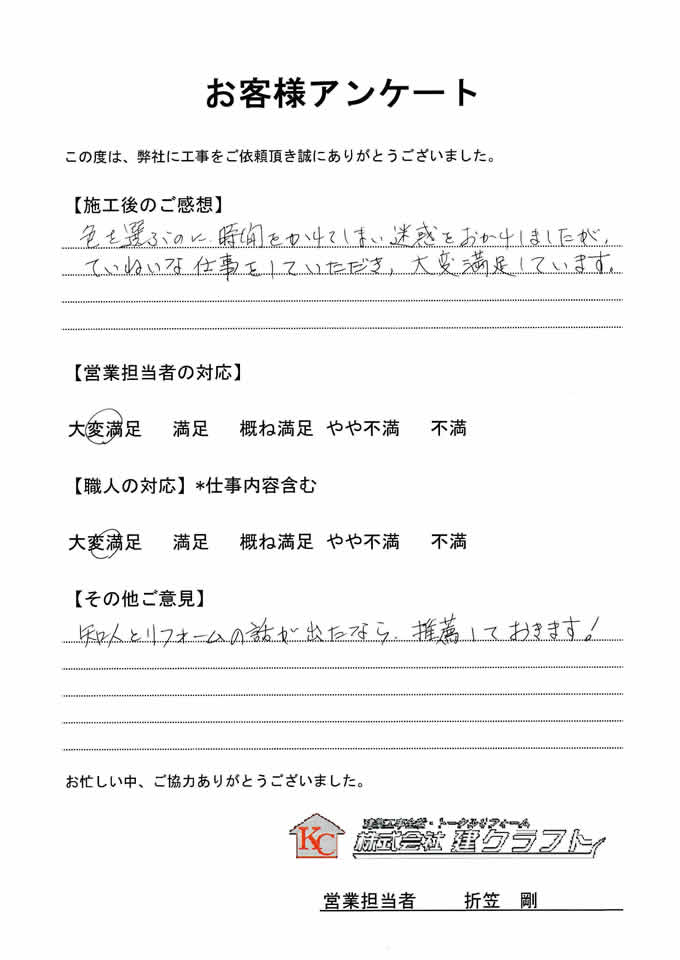 お客様アンケート
この度は、弊社に工事をご依頼頂き誠にありがとうございました。
【施工後のご感想】
色を選ぶのに、時間をかけてしまい迷惑をおかけしましたが、
ていねいな仕事をしていただき、大変満足しています。
【営業担当者の対応】
大変満足 満足 概ね満足 やや不満 不満
【職人の対応】*仕事内容含む
大変満足 満足 概ね満足 やや不満 不満
【その他ご意見】
知人とリフォームの話が出たなら、推薦しておきます!
お忙しい中、ご協力ありがとうございました。
KC
建築工事全般・トータルリフォーム
株式会社 建クラフト
営業担当者 折笠 剛